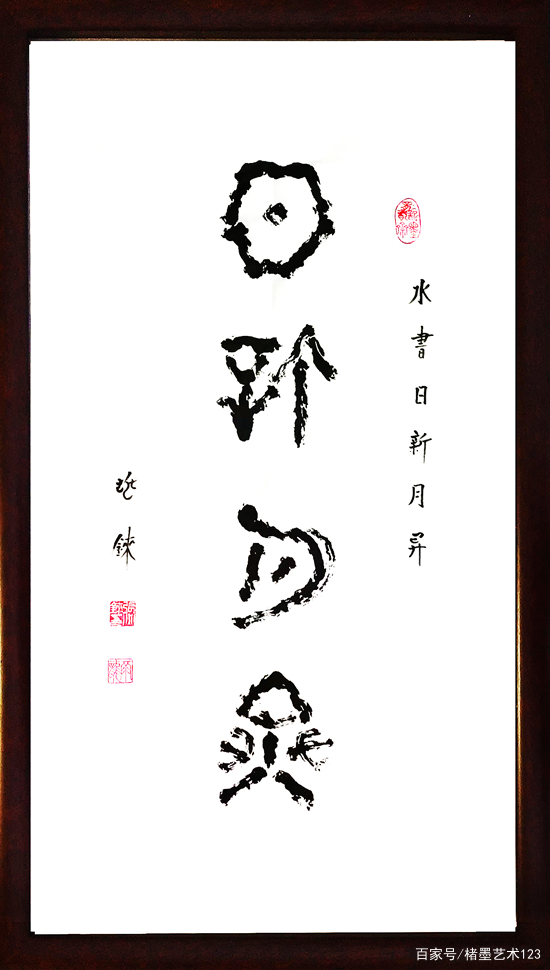 水書日新月异
日新月異
百家号/楮墨艺术123